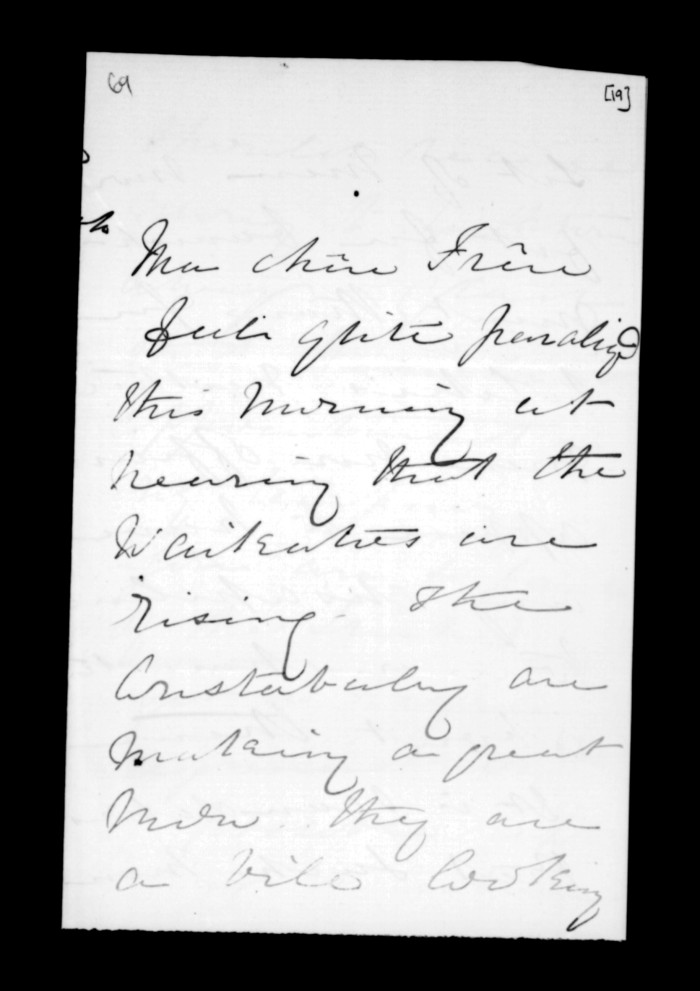 69
[19]
Ma chêre Frêre
feels quite paralized
this morning at
hearing that the
Waikatos are
rising. The
Constabulary are
making a great
move. they are
a vile looking